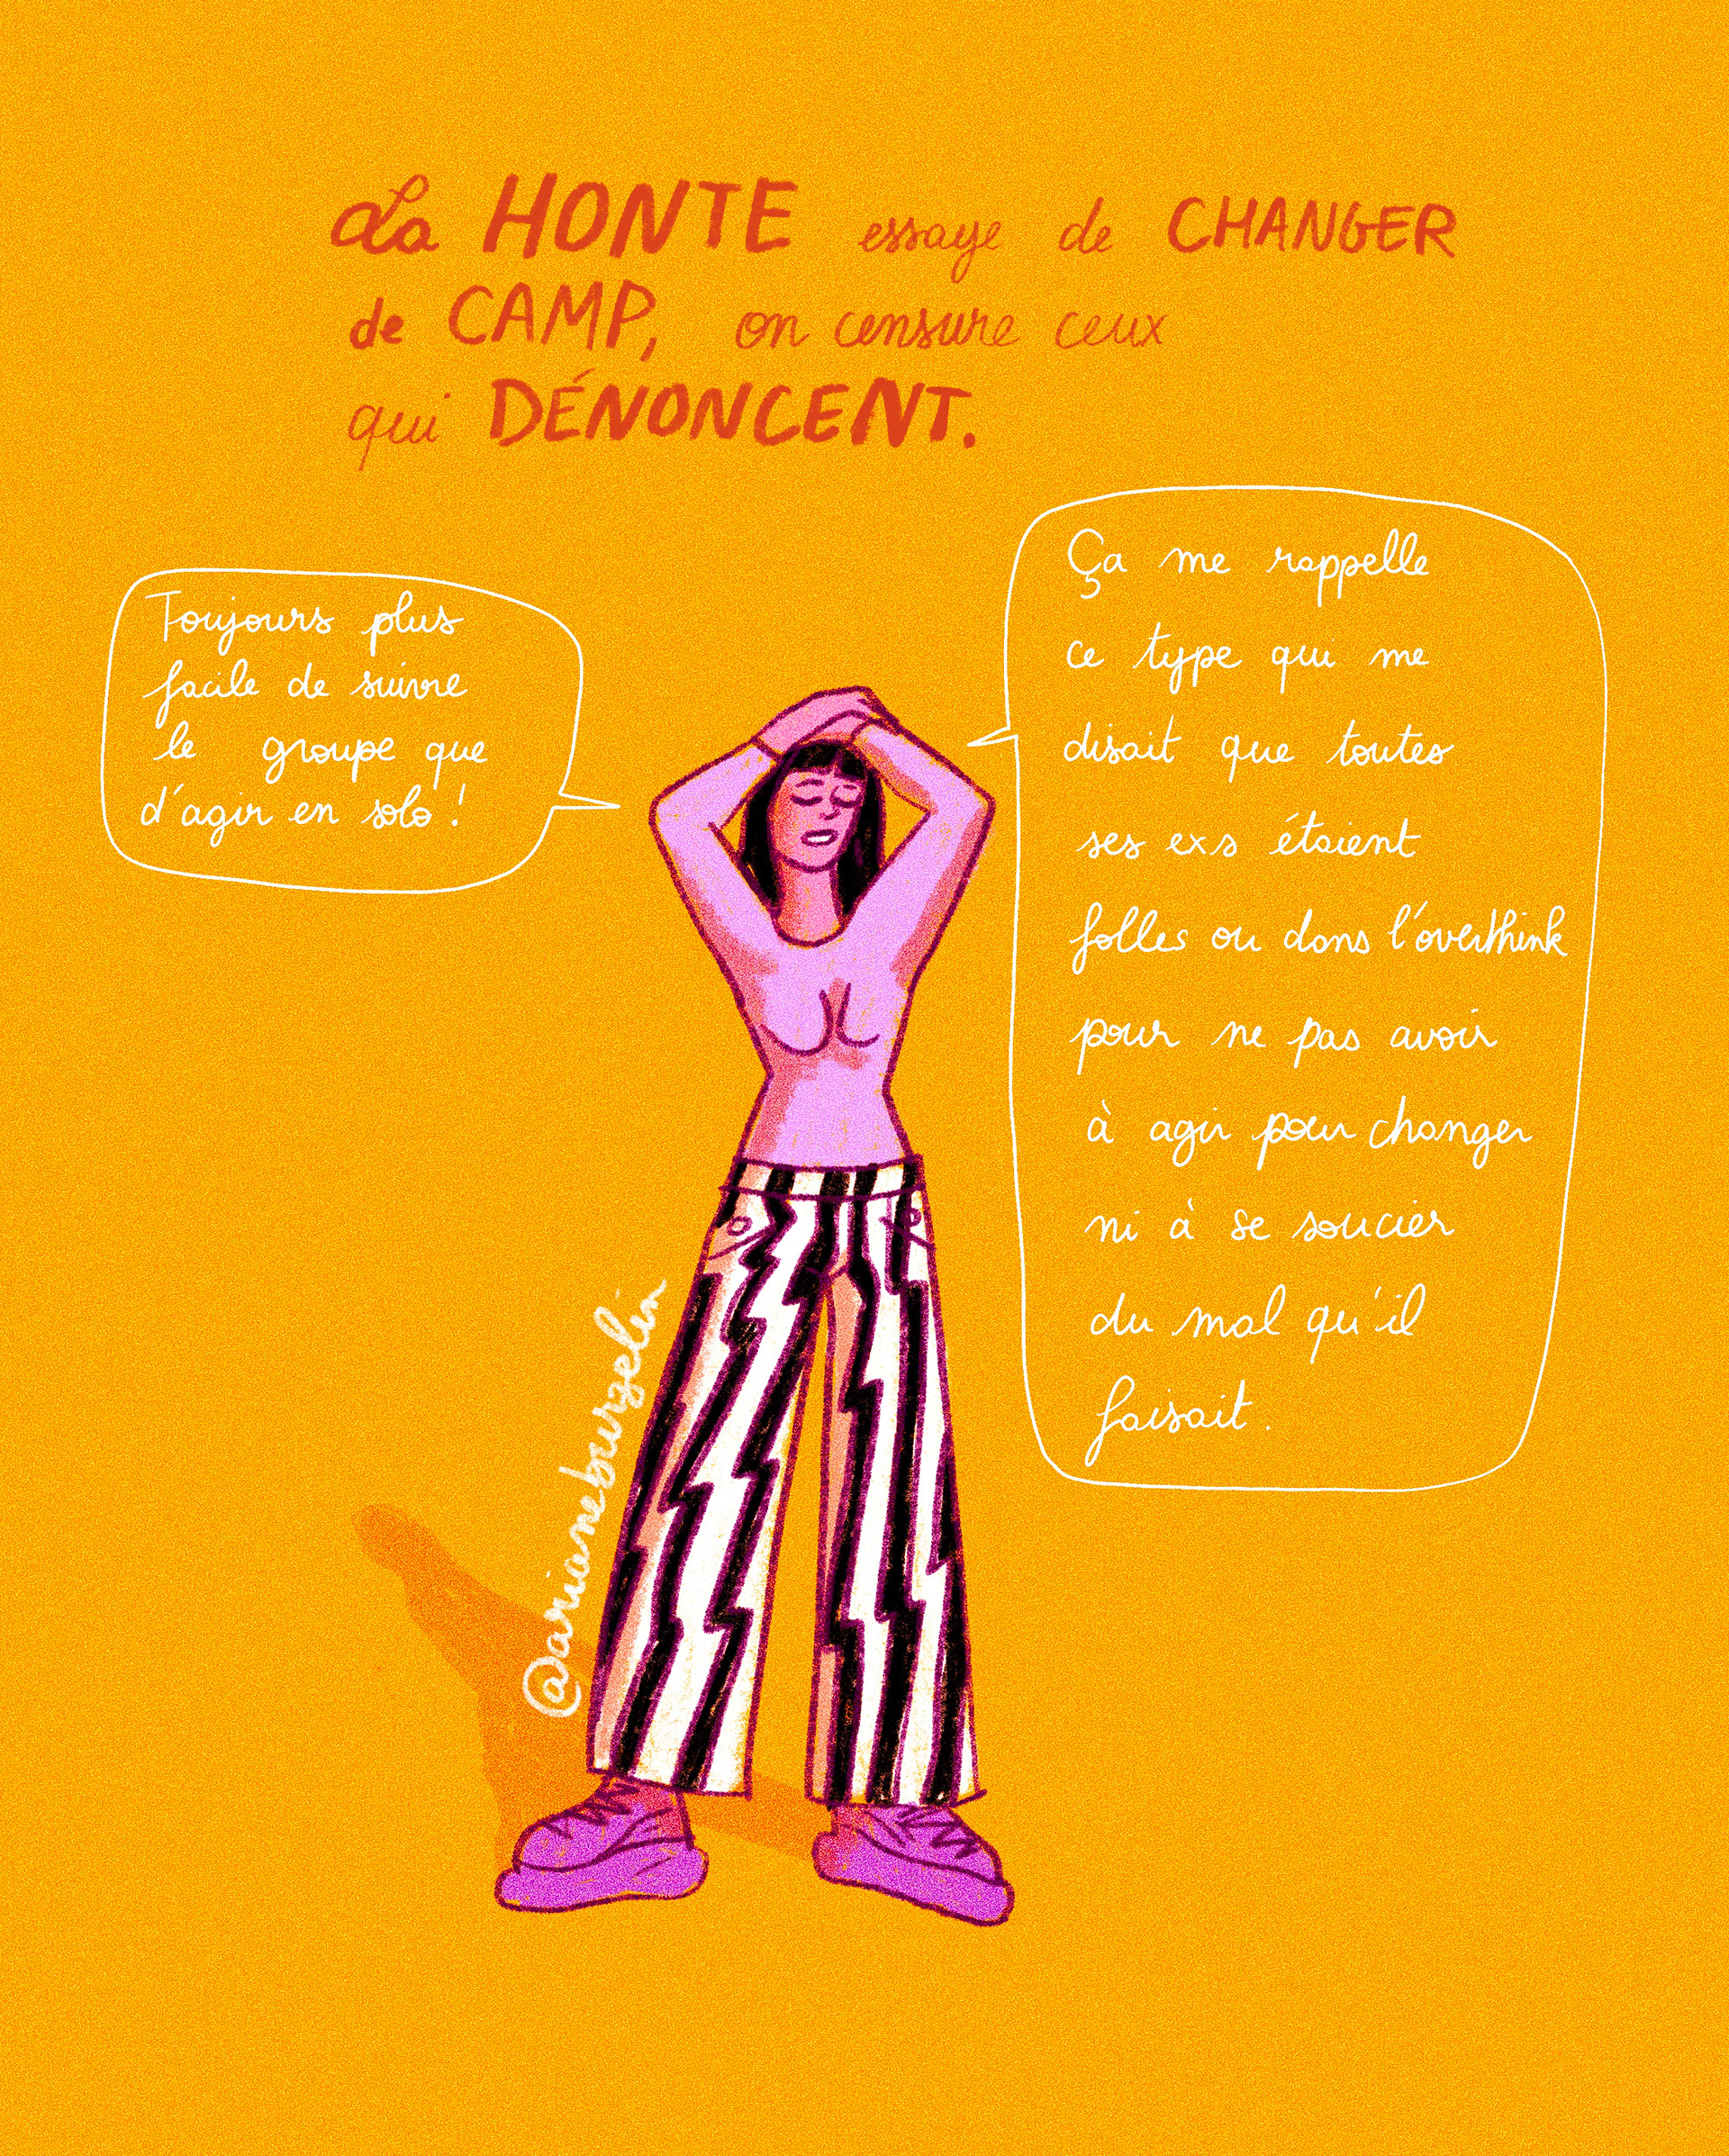 La HONTE essaye de CHANGER
de CAMP, on censure ceux
qui DÉNONCENT.
Toujours plus
facile de suivre
le groupe que
d'agir en solo !
Ça me rappelle
ce type qui me
disait que toutes
ses exs étaient
folles ou dans l'overthink
pour ne pas avoir
à agir pour changer
ni à se soucier
du mal qu'il
faisait.
@arianeburzelin